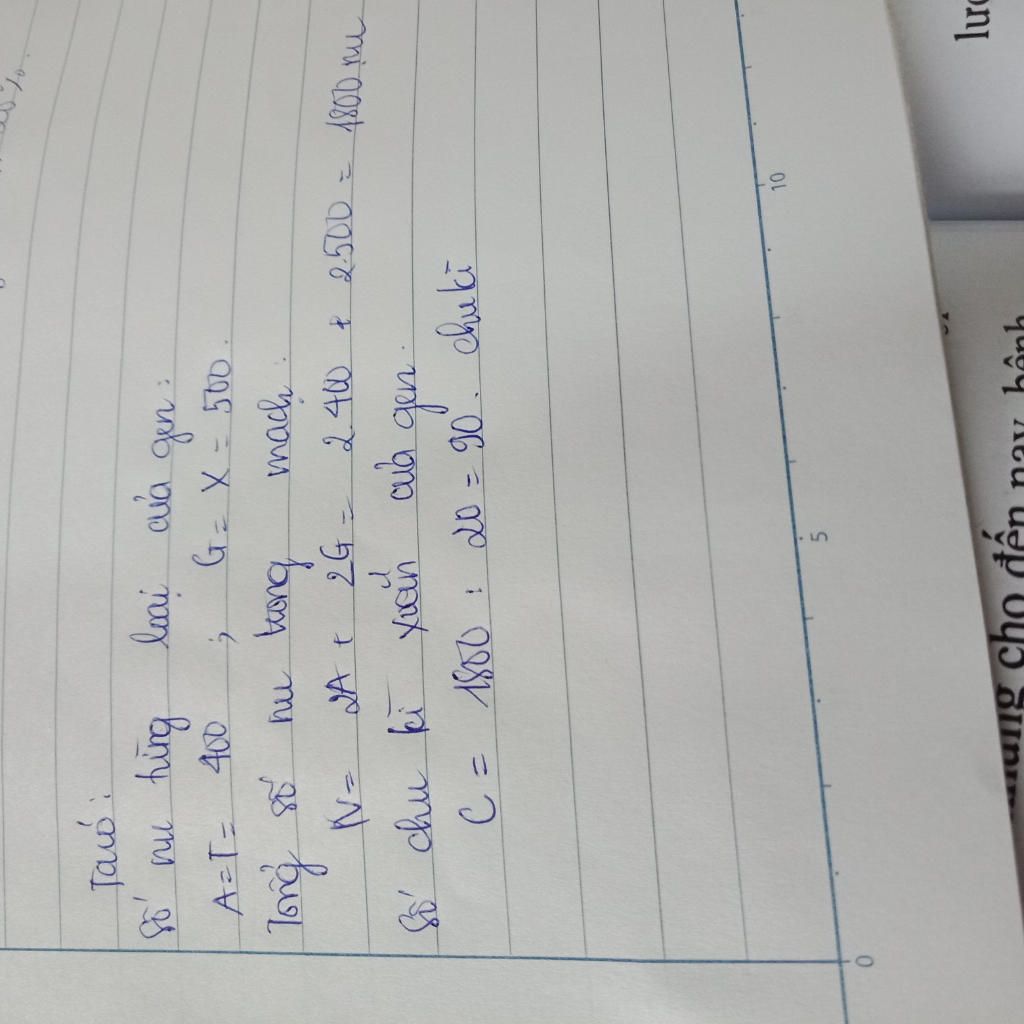 Ta có:
Số nu từng loại của gen:
A=T= 400 ; G= X = 500.
Tổng số nu trong mạch:
N= 2A + 2G = 2.400 + 2.500 = 1800 nu
Số chu kì xoắn của gen.
C = 1800 : 20 = 90. chu kì
0
5
10
cho đến nay bệnh